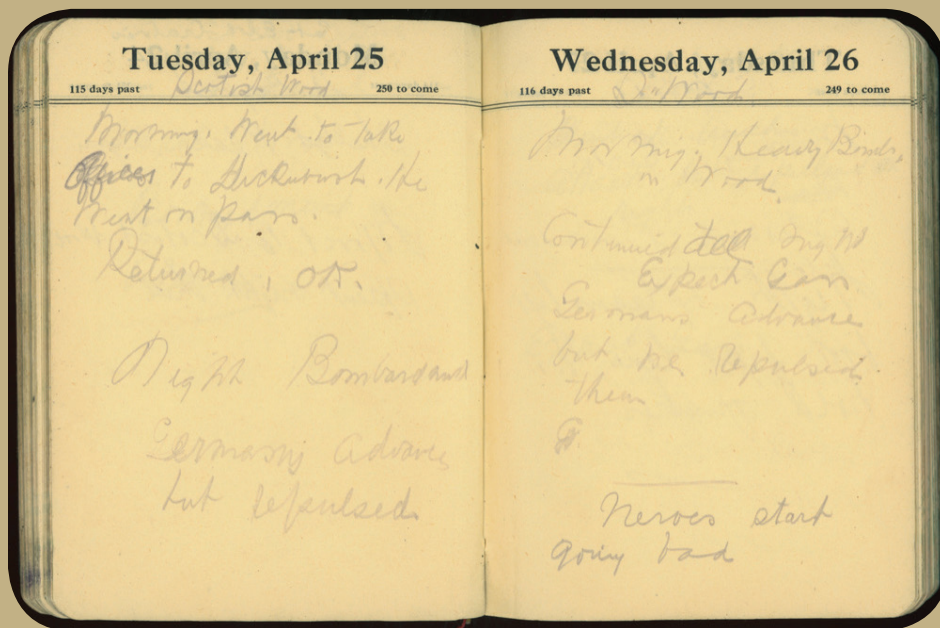 Tuesday, April 25
115 days past Scotish Wood 250 to come
Morning. Went to take
Officer to Dickebush. He
Went on pass.
Returned, OK.
Night Bombardment
Germans advance
but repulsed
Wednesday, April 26
116 days past S " Wood. 249 to come
Morning. Heavy Bomb.
on Wood.
Continued all night
Expect Gas
Germans advance
but we repulsed
them
Nerves start
going bad